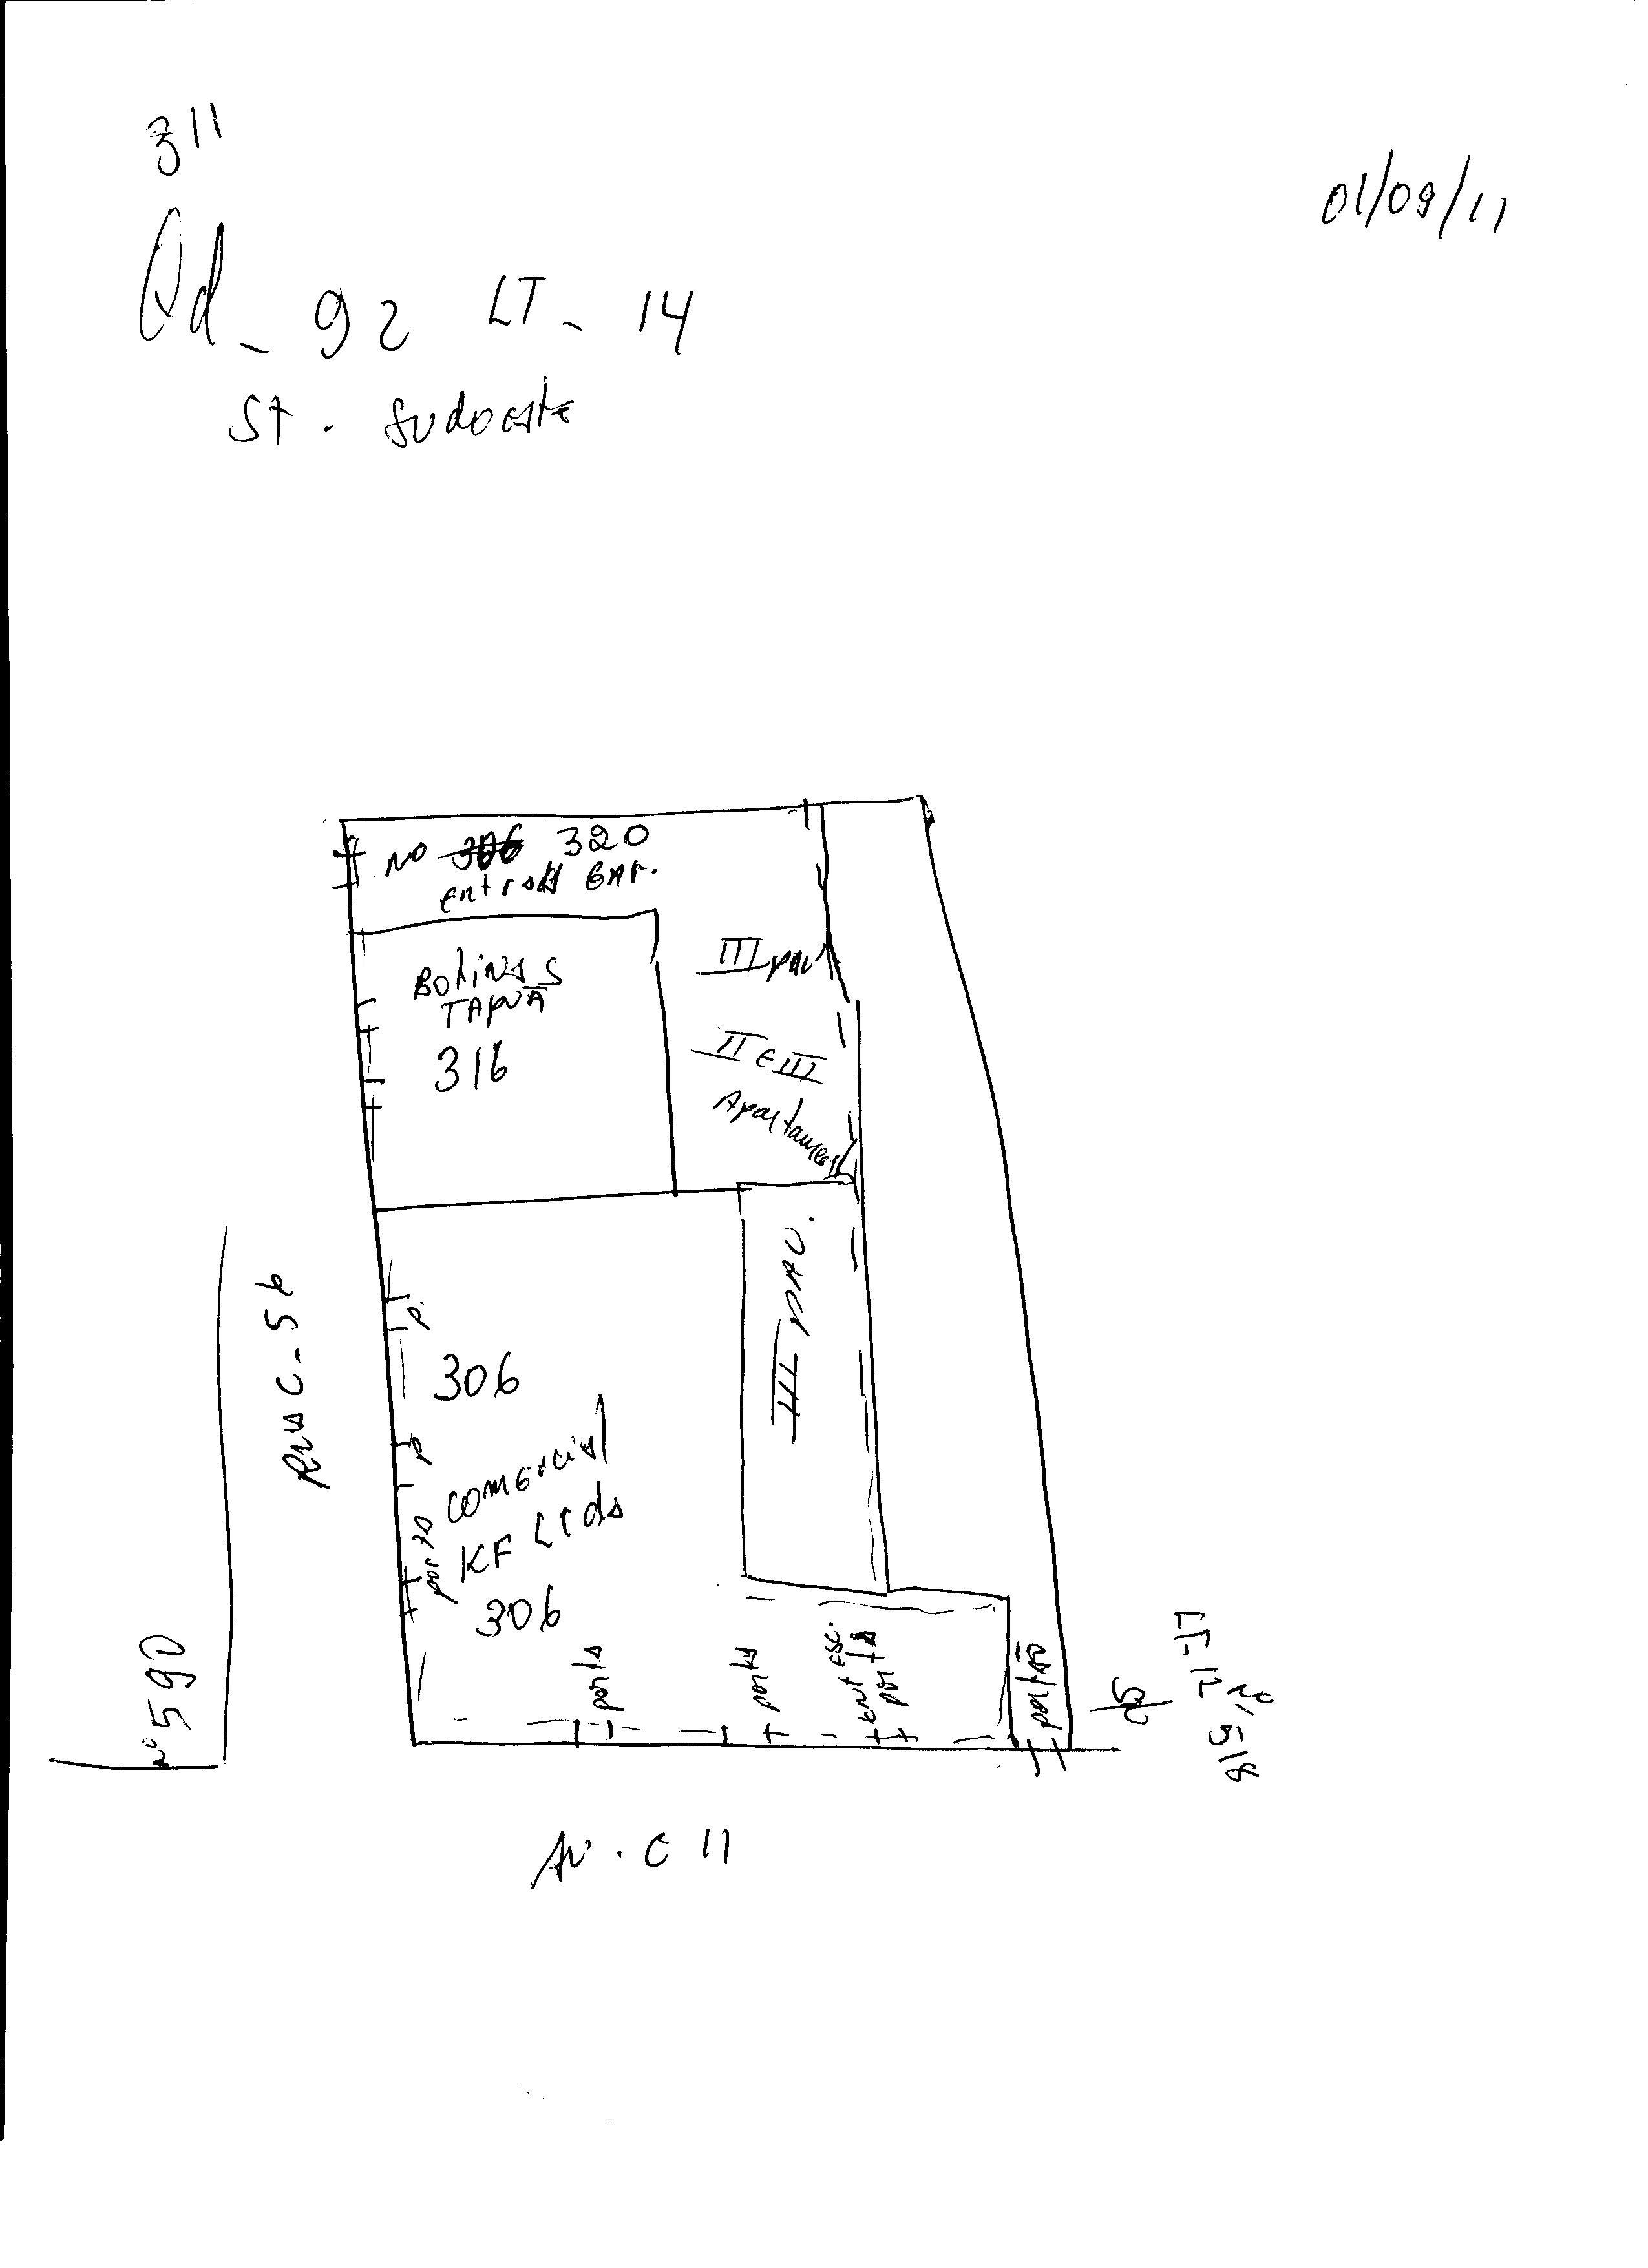 311
01/09/11
Qd - 92 LT - 14
St. Sudoeste
No 306 320
entrada GAR.
BOTINAS
TAPUÃ
316
III pav
II E III
Apartament
III PAV.
P.
306
P
porta
comercial
KF Ltda
306
Rua C-56
Nº 590
porta
porta
ent esc.
porta
portão
LT-17
Nº 518
Av. C 11